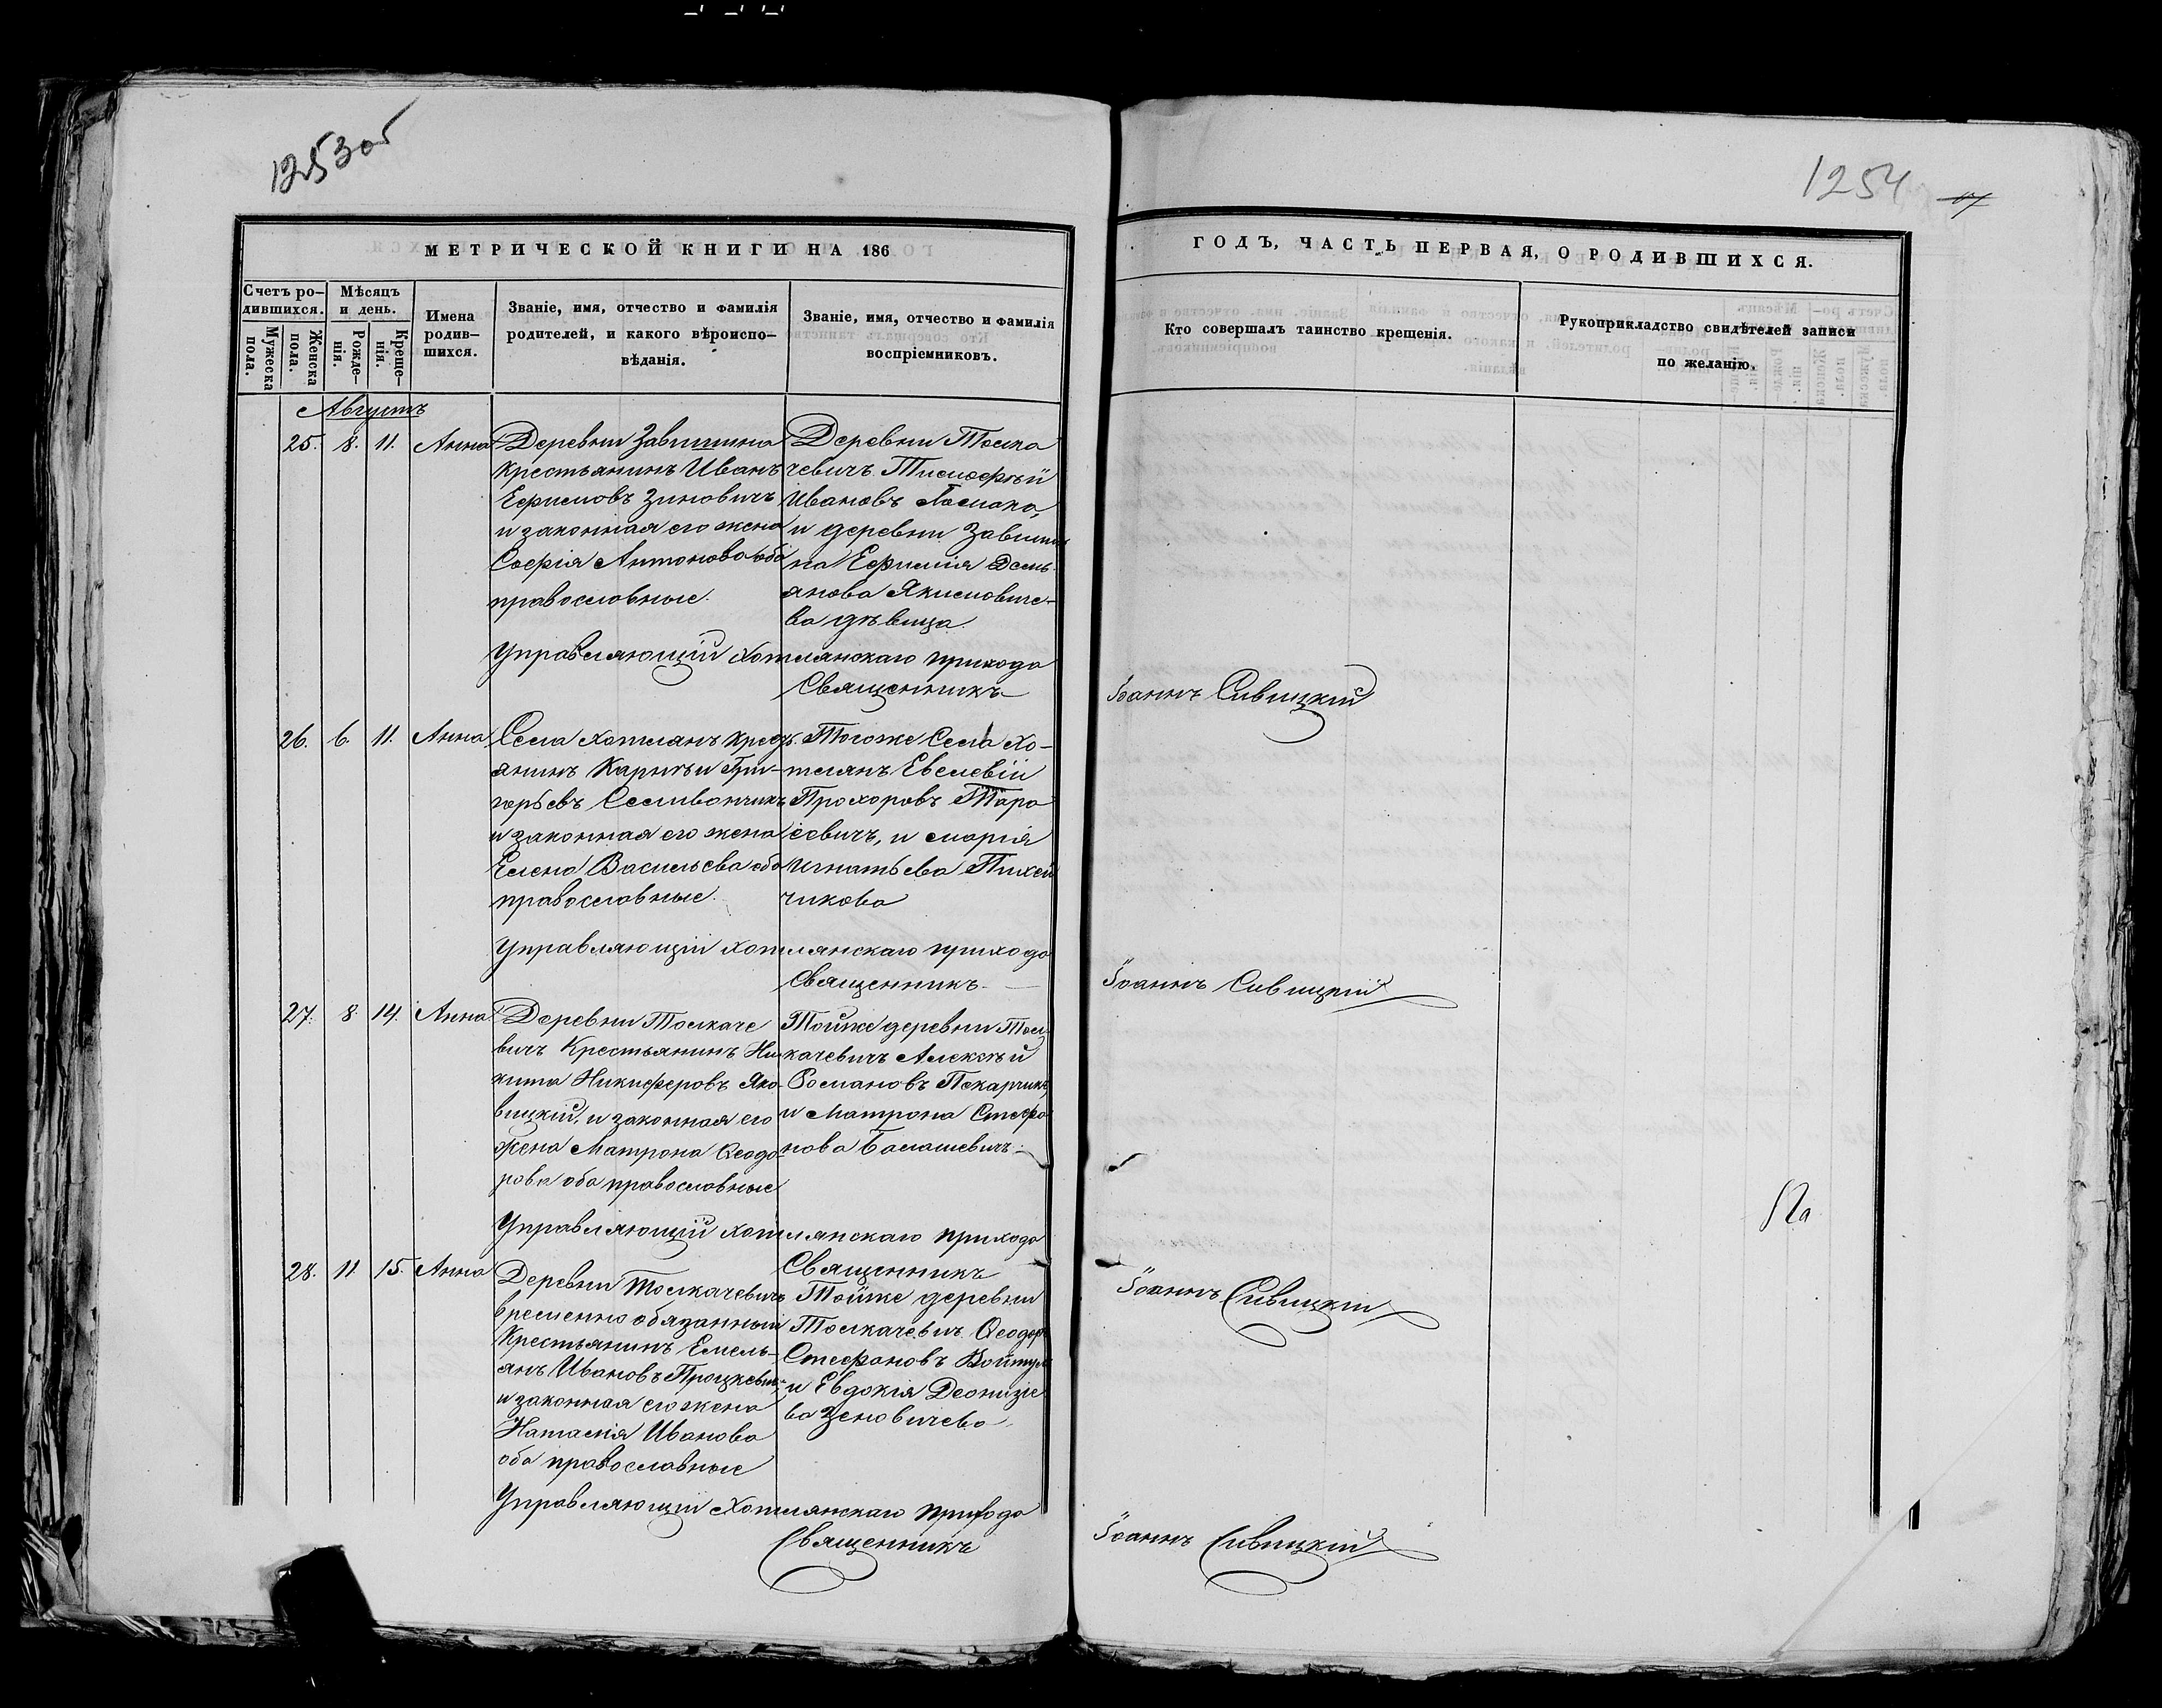 1253об
1254
МЕТРИЧЕСКОЙ КНИГИ НА 186
ГОДЪ, ЧАСТЬ ПЕРВАЯ, О РОДИВШИХСЯ.
Счетъ ро-
дившихся.
Мужеска
пола.
Женска
пола.
Мѣсяцъ
и день.
Рожде-
нія.
Креще-
нія.
Имена
родив-
шихся.
Званіе, имя, отчество и фамилія
родителей, и какого вѣроиспо-
вѣданія.
Званіе, имя, отчество и фамилія
воспріемниковъ.
Кто совершалъ таинство крещенія.
Рукоприкладство свидѣтелей записи
по желанію.
Августъ
25. 8. 11. Анна
Деревни Завишина
крестьянинъ Иванъ
Ефимовъ Зиновичъ
и законная его жена
Софія Антонова оба
православные.
Деревни Толка
чевичъ Тимофѣй
Ивановъ
и деревни Завиши
на Ефимія Демь
янова Якимовиче-
ва дѣвица.
Управляющій Хотлянскаго прихода
Священникъ
Іоаннъ Сивицкій
26. 6. 11. Анна
Села Хотлянъ крест
янинъ Карпъ и Гри-
горьевъ Селивончикъ
и законная его жена
Елена Васильева оба
православные.
Тогоже Села Хо-
тлянъ Евсевій
Прохоровъ Тара
севичъ, и Марія
Игнатьева Пихей
чикова
Управляющій Хотлянскаго прихода
Священникъ
Іоаннъ Сивицкій
27. 8. 14. Анна
Деревни Толкаче
вичъ Крестьянинъ Ни-
кита Никифоровъ Яко-
вицкій, и законная его
жена Матрона Ѳеодо-
рова оба православные
Тойже деревни Тол
качевичъ Алексѣй
Романовъ Пекарчикъ
и Матрона Стефа
нова Балашевичъ.
Управляющій Хотлянскаго прихода
Священникъ
Іоаннъ Сивицкій
28. 11. 15. Анна
Деревни Толкачевичъ
временно обязанный
Крестьянинъ Емель-
янъ Ивановъ Процкевичъ
и законная его жена
Наталія Иванова
оба православные
Тойже деревни
Толкачевичъ Ѳеодоръ
Стефановъ Войтул
и Евдокія Деонизіе
ва Зеновичева
Управляющій Хотлянскаго прихода
Священникъ
Іоаннъ Сивицкій